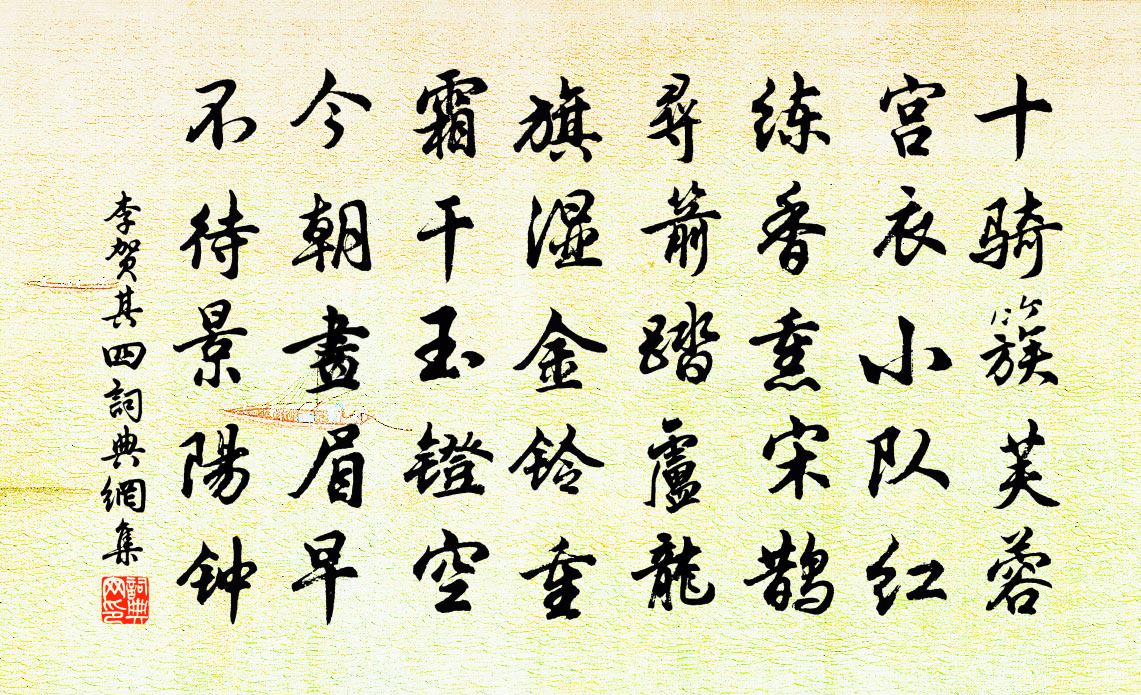 十骑簇芙蓉
宫衣小队红
练香熏宋鹊
寻箭踏卢龙
旗湿金铃重
霜干玉镫空
今朝画眉早
不待景阳钟
李贺其四词典网集
词典网印